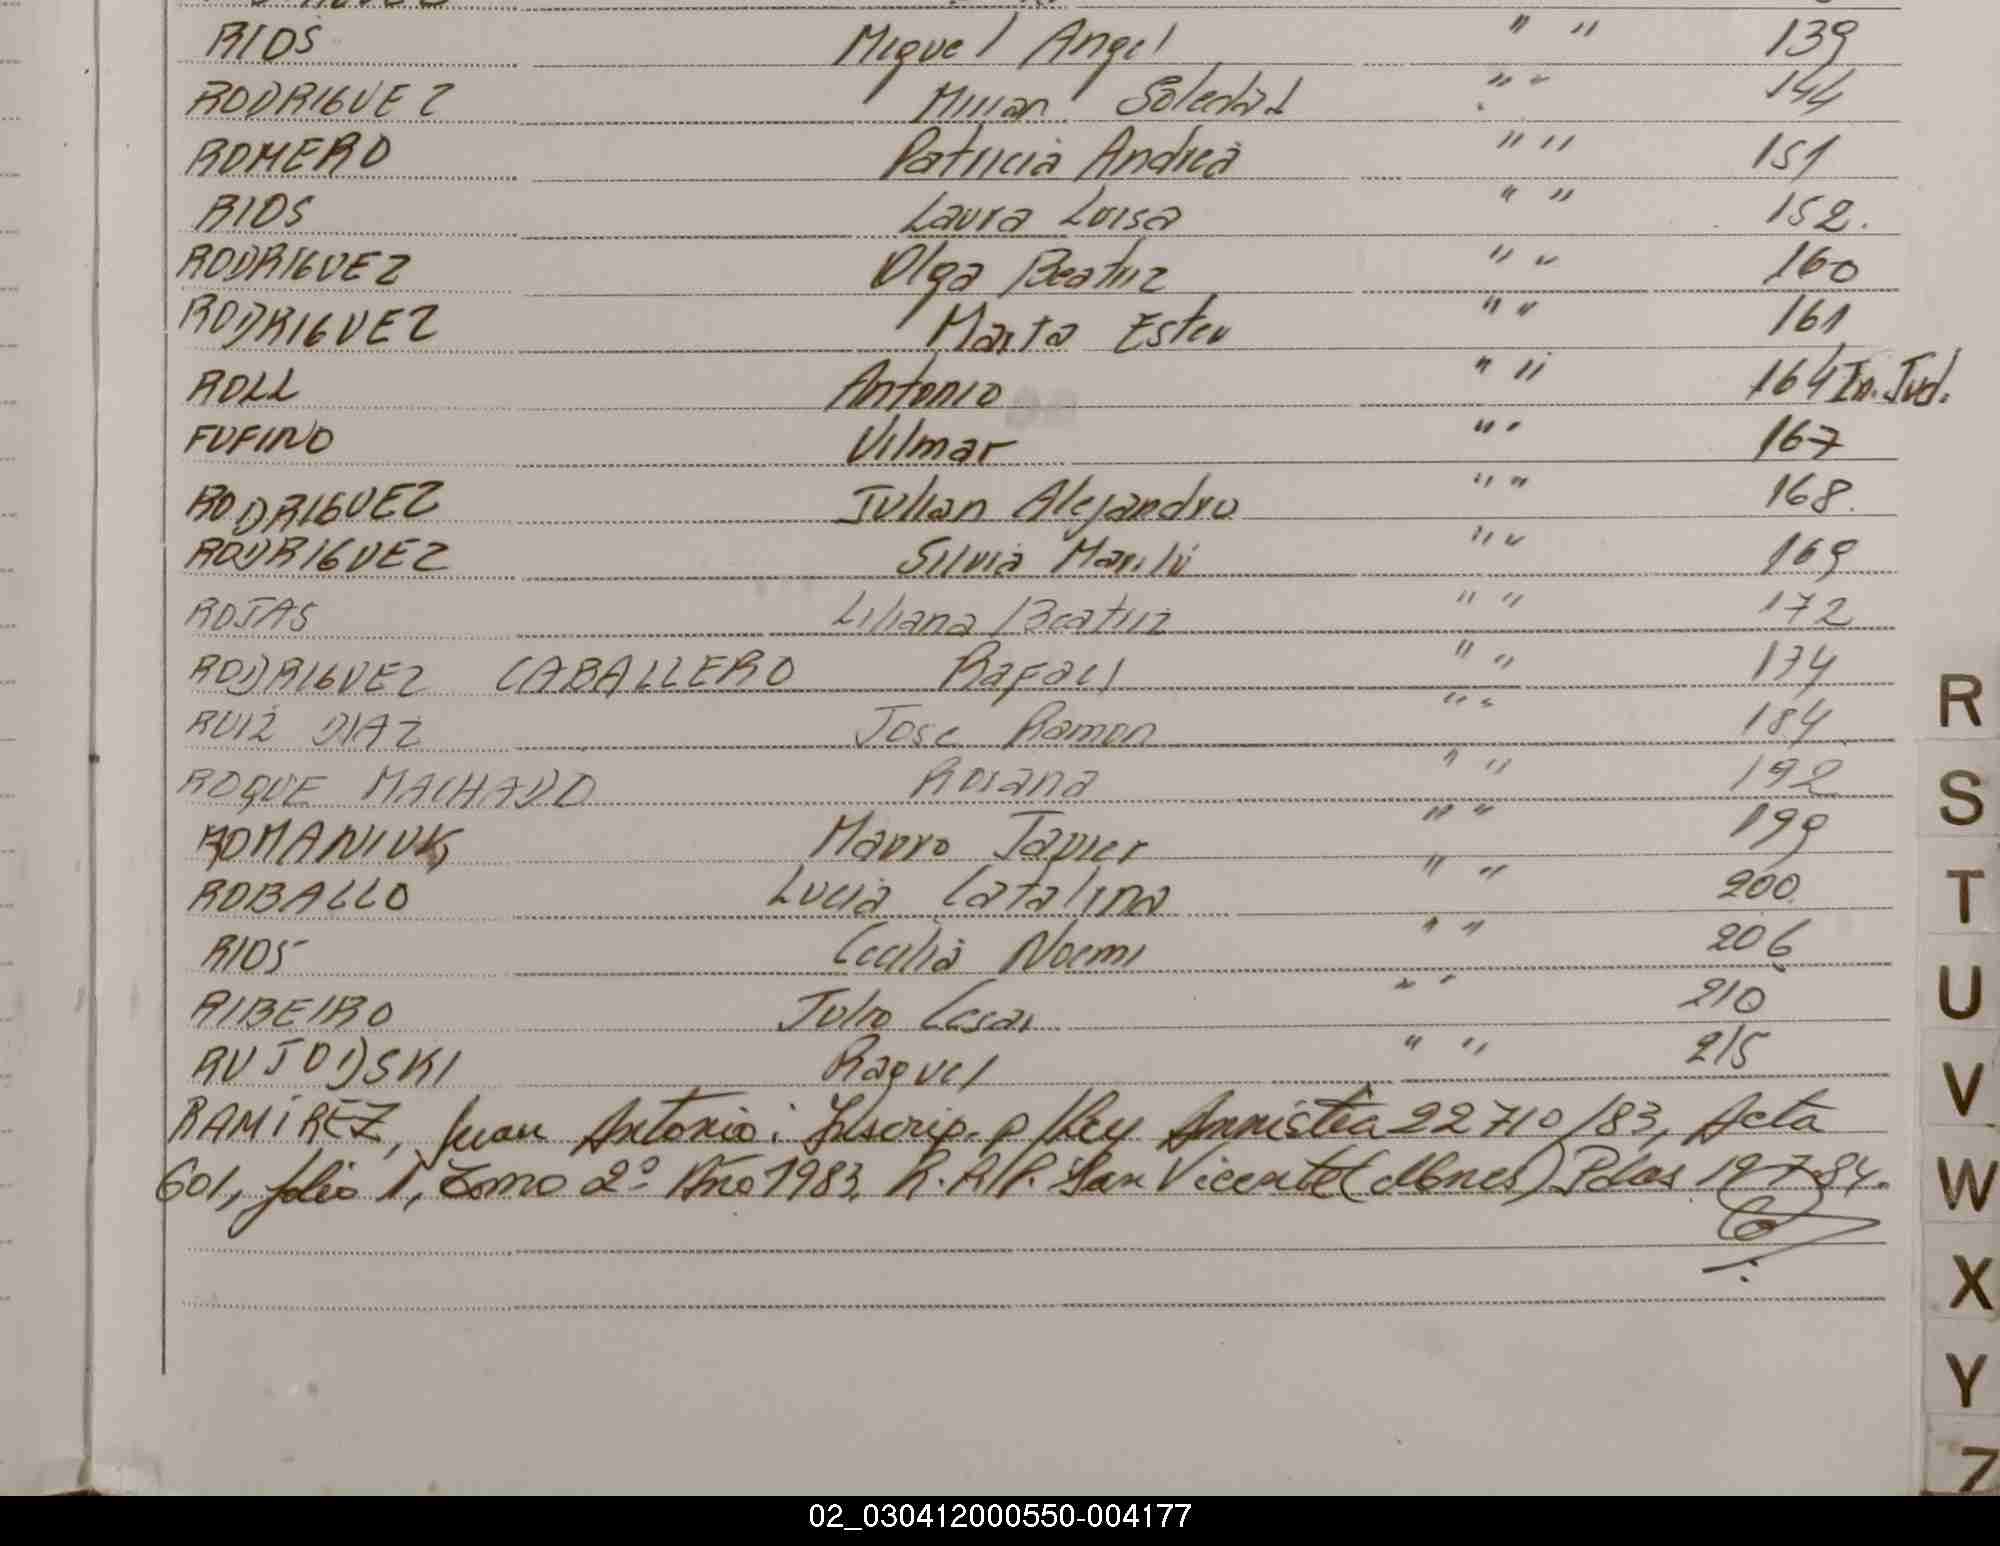 RIOS Miguel Angel " " 139
RODRIGUEZ Mirian Soledad " " 144
ROMERO Patricia Andrea " " 151
RIOS Laura Luisa " " 152.
RODRIGUEZ Olga Beatriz " " 160
RODRIGUEZ Marta Ester " " 161
ROLL Antonio " " 164 In. Jud.
FUFINO Vilmar " " 167
RODRIGUEZ Julian Alejandro " " 168.
RODRIGUEZ Silvia Marilú " " 169
ROJAS Liliana Beatriz " " 172
RODRIGUEZ CABALLERO Rafael " " 174
RUIZ DIAZ Jose Ramon " " 184
ROQUE MACHADO Rosana " " 192
ROMANIUK Mauro Javier " " 199
ROBALLO Lucia Catalina " " 200
RIOS Cecilia Noemi " " 206
RIBEIRO Julio Cesar " " 210
RUJODSKI Raquel " " 215
RAMÍREZ, Juan Antonio: Inscrip. p/Ley Amnistía 22710/83, Acta
601, folio 1, Tomo 2º Año 1983, R.P. San Vicente (Mnes) Pdas 19-7-84.
R
S
T
U
V
W
X
Y
Z
02_030412000550-004177